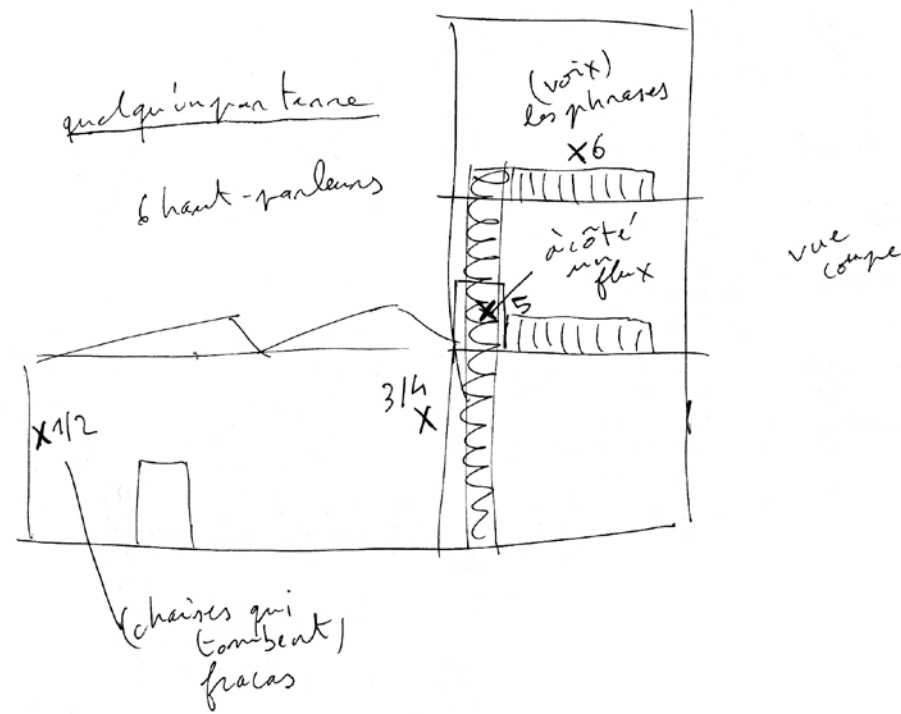 quelqu'un par terre
6 haut-parleurs
(voix)
les phrases
X6
à côté
un
flux
X 5
vue
coupe
3/4
X
X 1/2
(chaises qui
tombent)
fracas